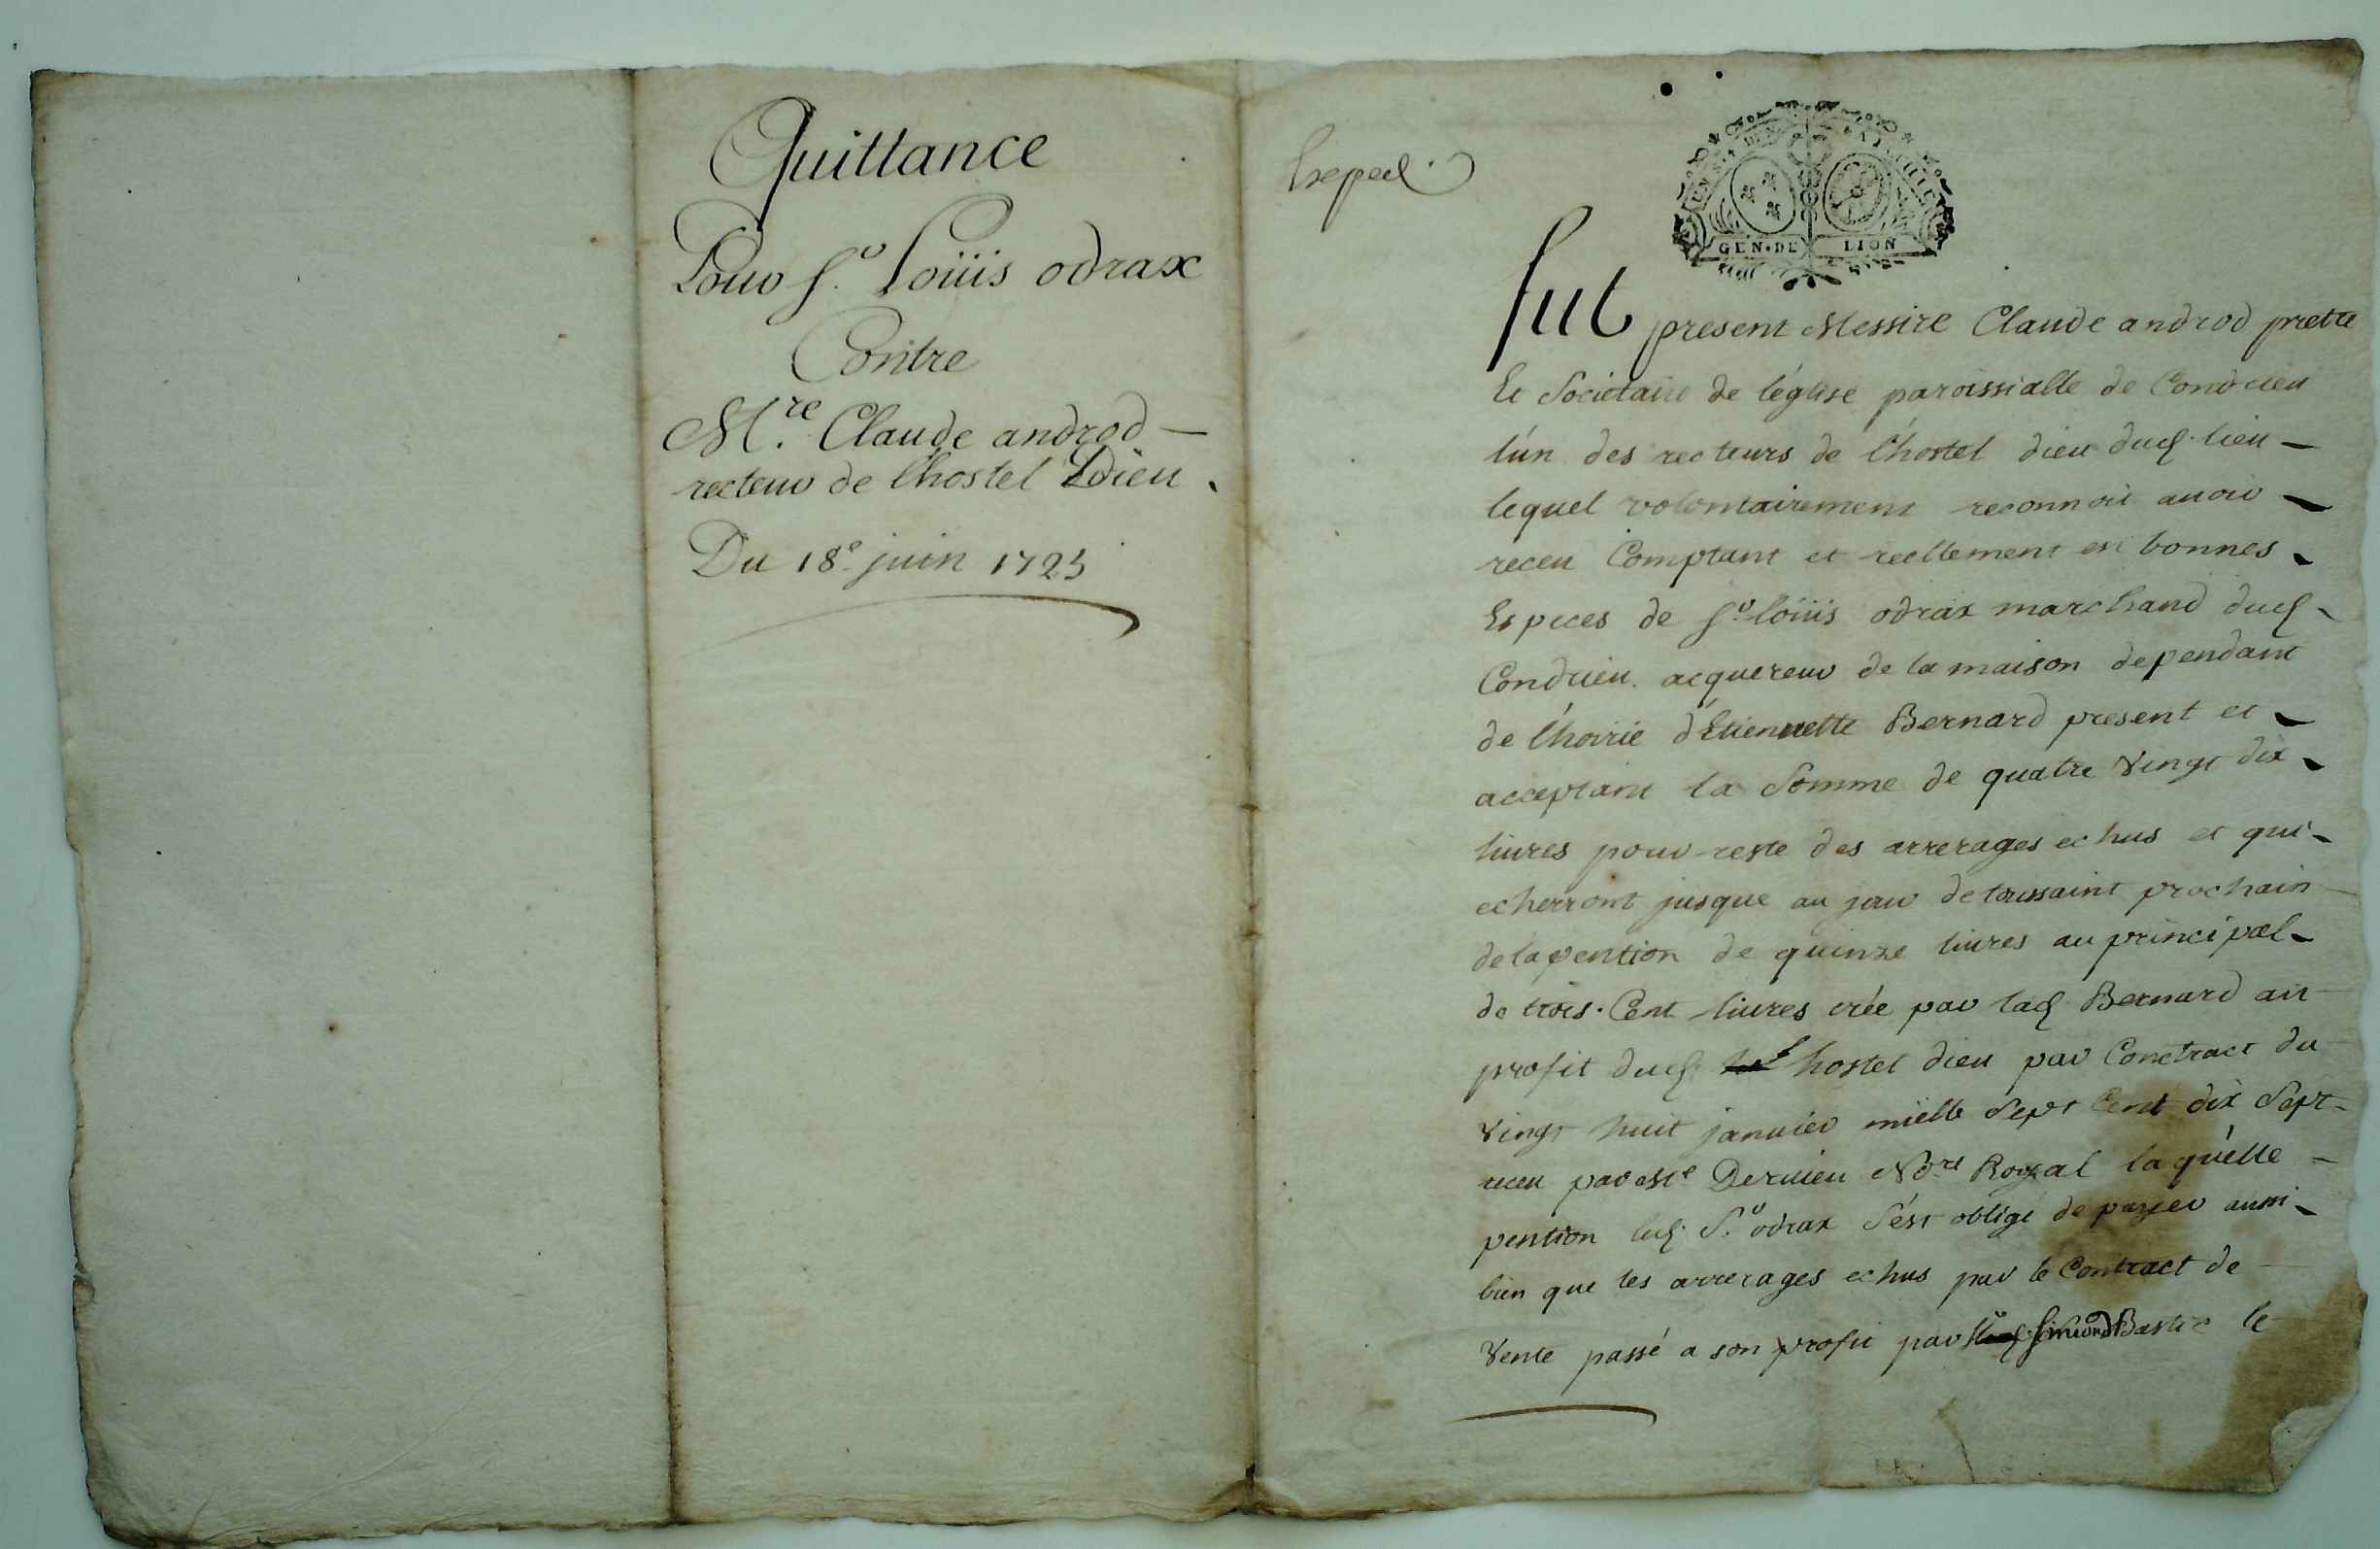 Quittance
Pour Sr. Loüis odrax
Contre
Mre. Claude androd —
recteur de l'hostel Dieu.
Du 18e juin 1725
GEN. DE LION
fut present Messire Claude androd prette
Et Sociétaire de léglise paroissialle de Condrieu
lún des recteurs de l'hostel dieu dud. lieu —
lequel volontairement reconnoit auoir
receu Comptant et reellement en bonnes
Especes de Sr. loüis odrax marchand dud.
Condrieu acquereur de la maison dependant
de l'hoirie d'Etiennette Bernard present et
acceptant la Somme de quatre Vingt dix
liures pour reste des arrerages echus et qui
echerront jusque au jour de toussaint prochain
de la pention de quinze liures au principal
de trois Cent liures crée par lad. Bernard au
profit dud. hostel dieu par Conctract du
Vingt huit januier mielle Sept Cent dix Sept
receu par Me Deruieu Nore Royal laquélle
pention led. Sr. odrax S'ést obligé de payer aussi
bien que les arrerages echus par le Contract de
Vente passé a son profit par Simond le